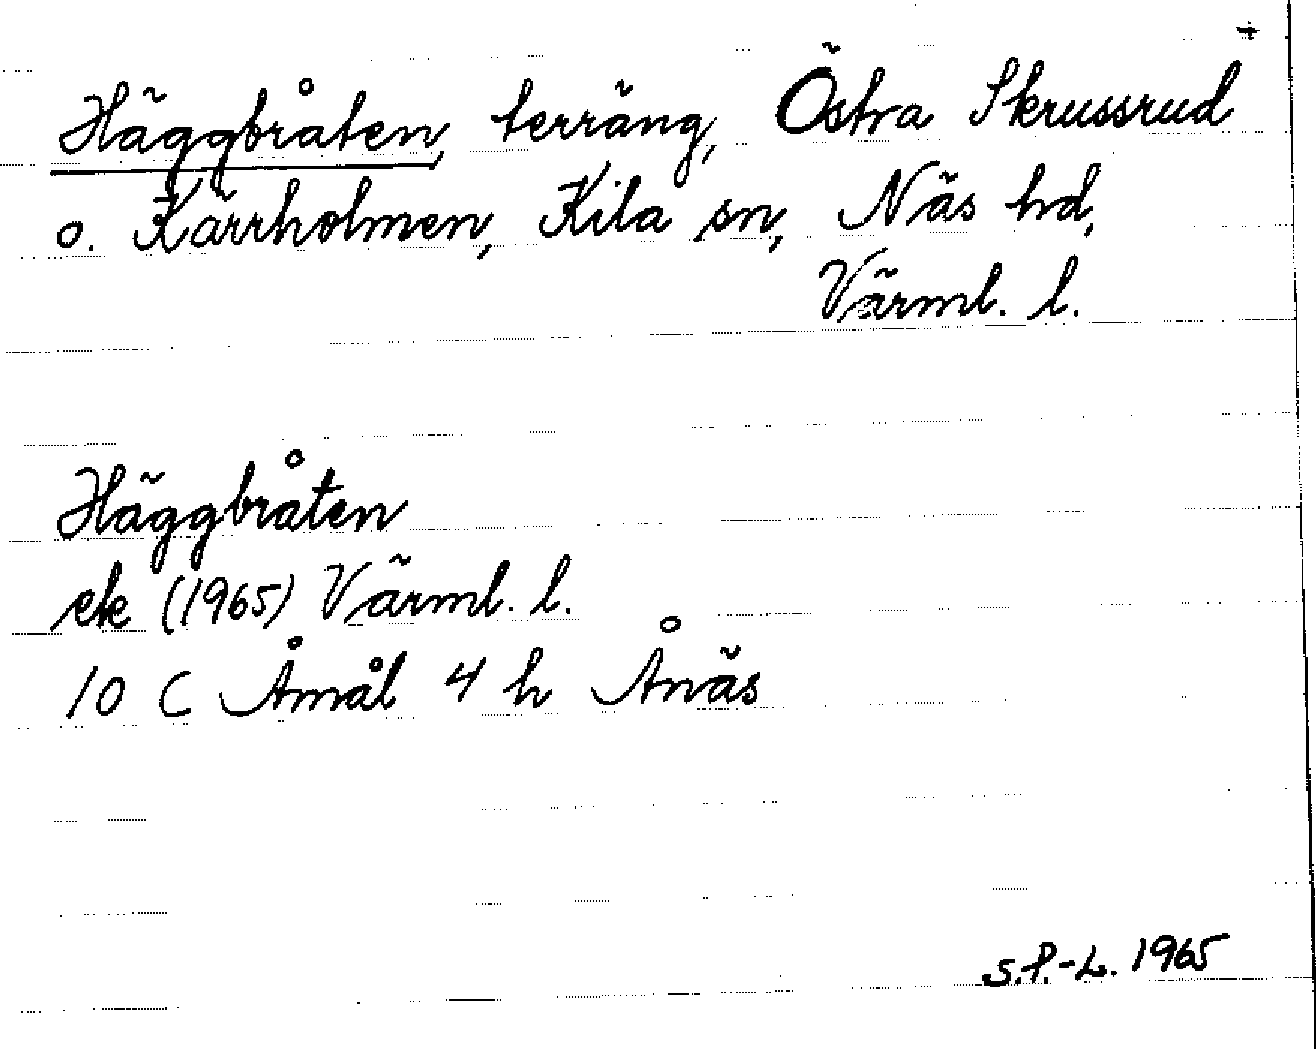 +
Häggbråten, terräng, Östra Skrussrud
o. Kärrholmen, Kila sn, Näs hd,
Värml. l.
Häggbråten
ek (1965) Värml. l.
10 C Åmål 4 h Ånäs
S.P.-L. 1965